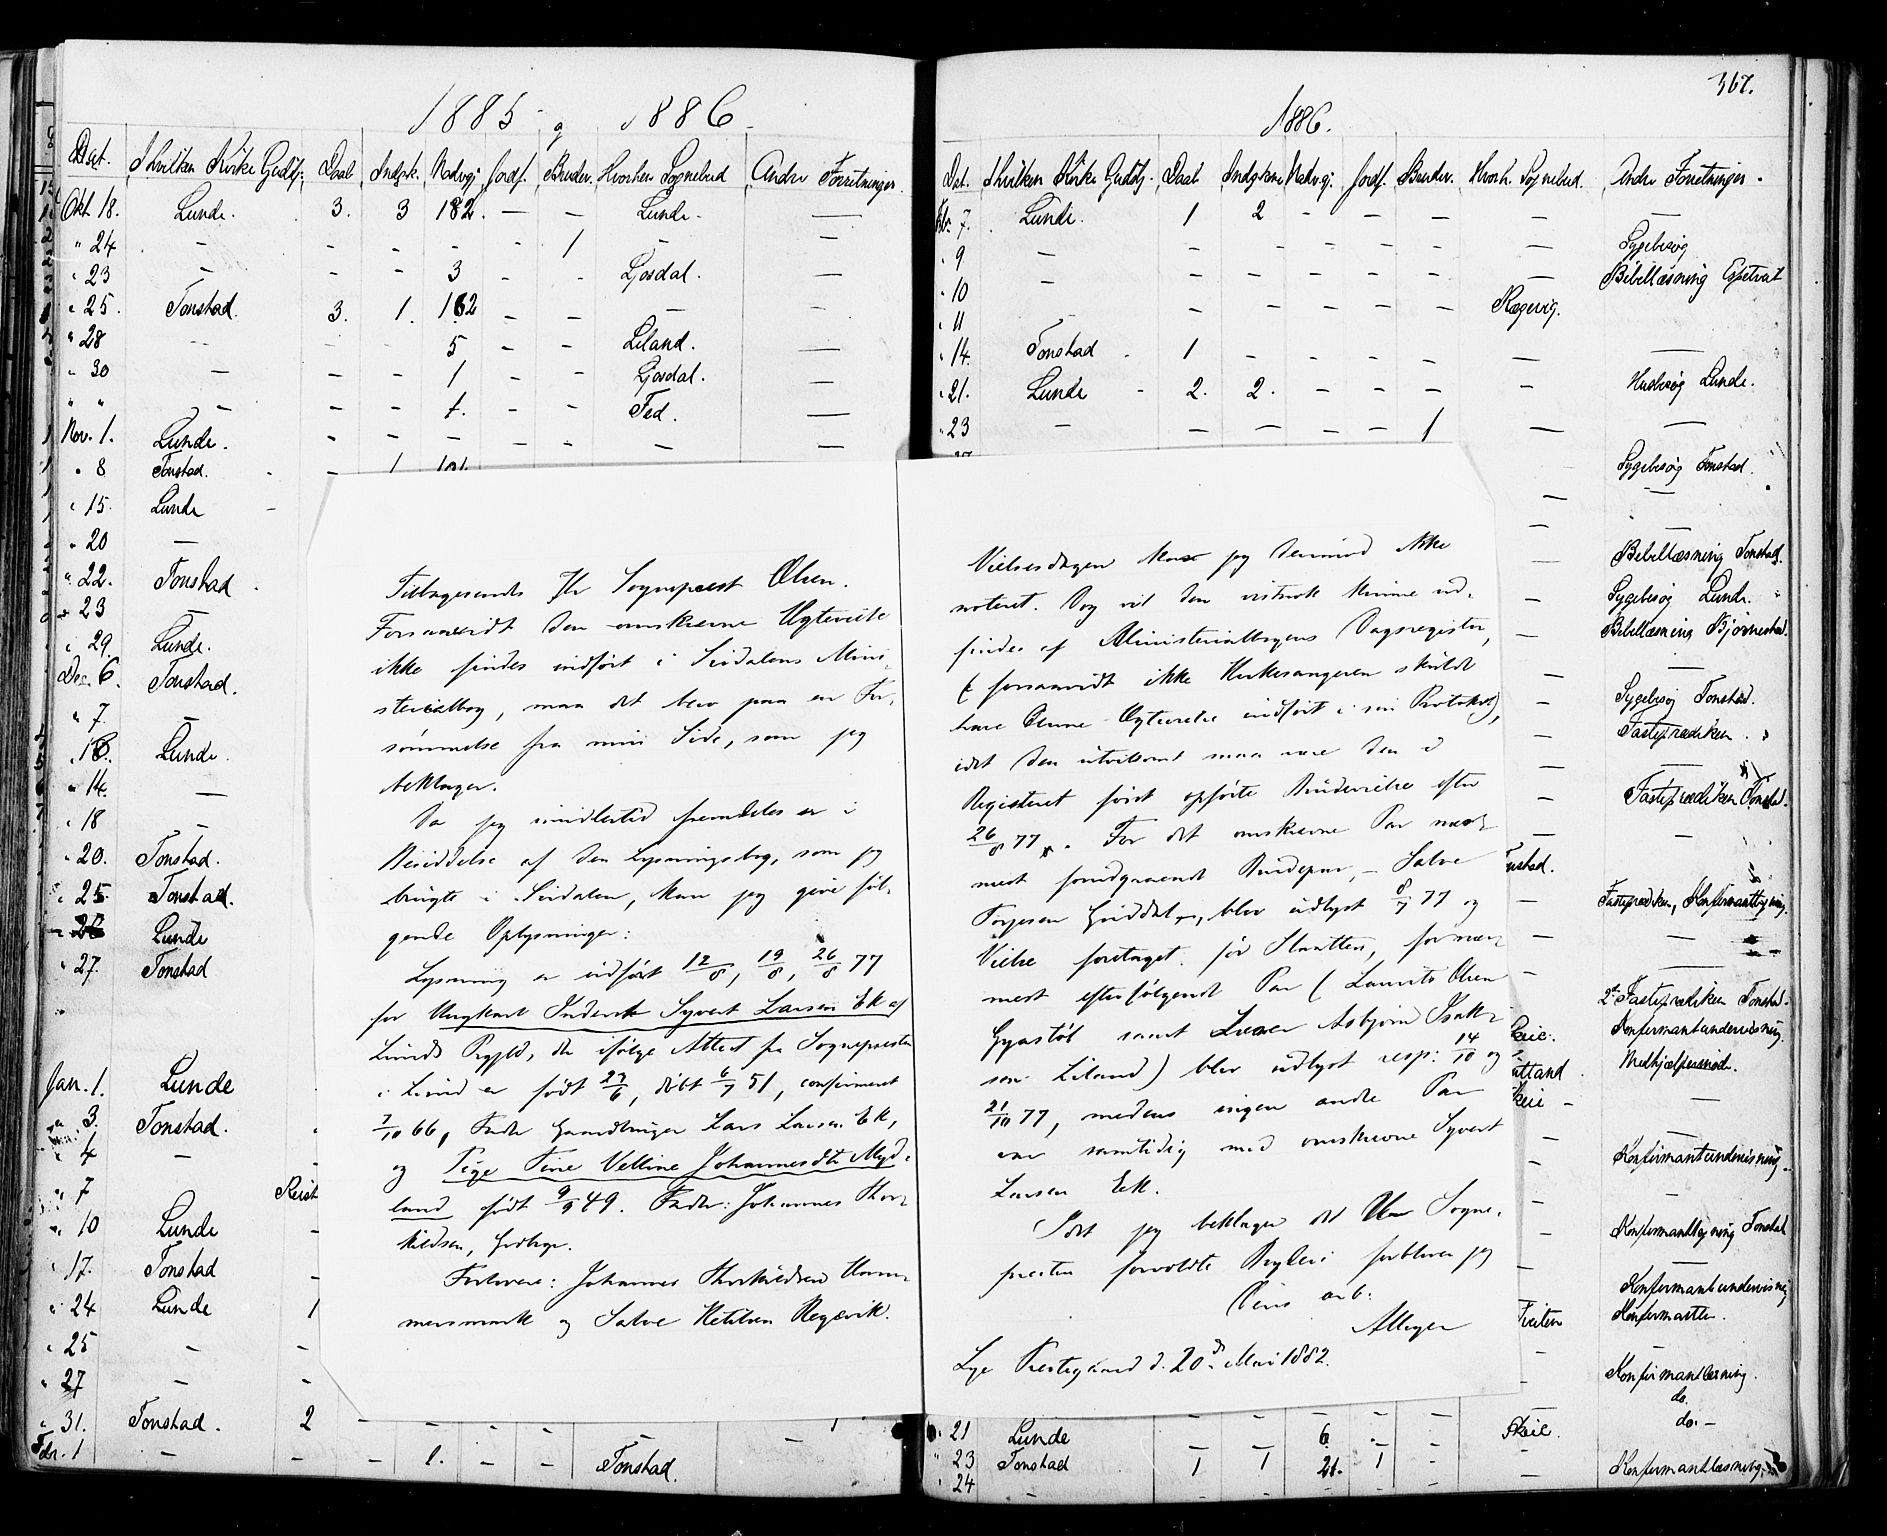 1885 og 1886.
Dat. I hvilken Kirke Gudstj. Daab Indsk. Nadvgj. Jordf. Brudev. Hvorhen Sognebud Andre Forretninger.
Okt 18. Lunde. 3. 3 182. — — Lunde. —
" 24 — - - - - 1 — —
" 23 — - - 3 - - Gjosdal. —
" 25. Tonstad. 3. 1. 162 — — — —
" 28 — - - 5 — - Liland. —
" 30 — - - 1 - - Gjosdal. —
" " — - - 1. - - Fed. —
Nov. 1. Lunde. - - — - - — —
" 8 Tonstad. - 1 101
" 15. Lunde -
" 20 —
" 22. Tonstad
" 23 —
" 29. Lunde.
Dec. 6. Tonstad.
" 7. —
" 13. Lunde.
" 14. —
" 18 —
" 20. Tonstad.
" 25 Tonstad.
" 26 Lunde
" 27. Tonstad
Jan. 1. Lunde
" 3. Tonstad.
" 4 —
" 7
" 10 Lunde -
" 17. Tonstad -
" 24 Lunde 1
" 25 — -
" 27 — -
" 31. Tonstad. 2 - - - - - — 1
Febr. 1 — - - 1. - - Tonstad.
Tilbagesendes Hr Sognepræst Olsen.
Forsaavidt den omskrevne Ægtevielse
ikke findes indført i Sirdalens Mini-
sterialbog, maa det bero paa en For-
sømmelse fra min Side, som jeg
beklager.
Da jeg imidlertid fremdeles er i
Besiddelse af den Lysningsbog, som jeg
brugte i Sirdalen, kan jeg give føl-
gende Oplysninger:
Lysning er indført 12/8, 19/8, 26/8 77
for Ungkarl Inderst Syvert Larsen Ek af
Lunds Prgjld, der ifølge Attest fra Sognepresten
i Lund er født 27/6, døbt 6/7 51, confirmeret
7/10 66, Fader Gaardbruger Lars Larsen Ek,
og Pige Tine Velline Johannesdtr Myd-
land født 9/9 49. Fader: Johannes Thor-
kildsen, Gaardbruger.
Forlovere: Johannes Thorkildsen Hom-
mersmark og Salve Ketilsen Regevik.
367.
1886.
Dat. I hvilken Kirke Gudstj. Daab Indgskne. Nadvgj. Jordf. Brudev. Hvorh. Sognebud. Andre Forretninger.
Febr. 7. Lunde. 1 2 - — — — —
" 9 — - - - - - — Sygebesøg
" 10 — - - - - - — Bibellæsning Espetvet
" 11 - - - - - Rægevig.
" 14. Tonstad 1 - - - - — —
" 21. Lunde 2. 2. - - - - Husbesøg Lunde.
" 23 — - - - - 1 — —
Sygebesøg Tonstad.
—
—
Bibellæsning Tonstad.
Sygebesøg Lunde.
Bibellæsning Bjørnestad.
—
Sygebesøg Tonstad.
Fasteprædiken.
—
Fasteprædiken Tonstad.
—
Fasteprædiken, Konfirmantlæsning.
—
—
2den Fasteprædiken Tonstad.
Skeie. Konfirmantundervisning.
Medhjelpermøde.
Skeie —
Konfirmantundervisning.
—
Konfirmantlæsning Tonstad
—
Konfirmantundervisning
Konfirmanter.
—
Konfirmantlæsning.
do.
do. —
" 21 Lunde — — 6 - - Skeie.
" 23 Tonstad 1 1 21. 1 - — Konfirmantlæsning.
" 24 -
Vielsesdagen har jeg derimod ikke
noteret. Dog vil den vistnok kunne ud-
findes af Ministerialbogens Dagsregister,
(forsaavidt ikke Kirkesangeren skulde
have denne Ægtevielse indført i sin Protokol),
idet den utvilsomt maa være den i
Registeret først opførte Brudevielse efter
26/8 77. For det omskrevne Par nær-
mest foregaaende Brudepar, — Salve
Torjesen Guddal —, blev udlyst 8/7 77 og
Vielse foretaget før Slaatten, for nær-
mest efterfølgende Par (Laurits Olsen
Gyastøl samt Asbjørn Isak-
sen Liland) blev udlyst resp: 14/10 og
21/10 77, medens ingen andre Par
var samtidig med omskrevne Syvert
Larsen Ek.
Idet jeg beklager det Hr Sogne-
presten forvoldte Bryderi forbliver jeg
Deres arb.
Lye Prestegaard d. 20de Mai 1882.